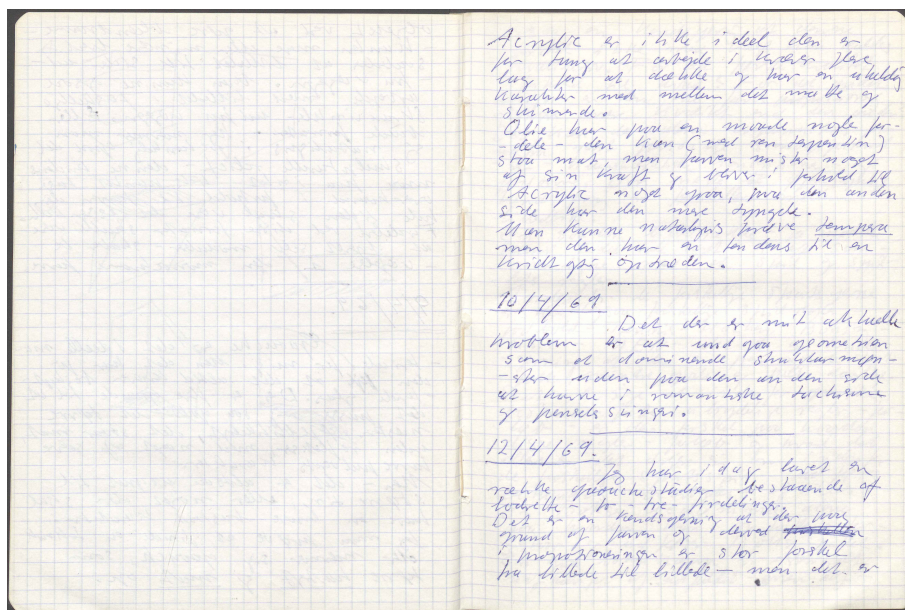 Acrylic er ikke ideel den er
for tung at arbejde i kræver flere
lag for at dække og har en uheldig
karakter med mellem det matte og
skinnende.
Olie har paa en maade nogle for-
-dele - den kan (med ren terpentin)
staa mat, men farven mister noget
af sin kraft og bliver i forhold til
Acrylic noget graa, paa den anden
side har den mere tyngde.
Man kunne naturligvis prøve tempera
men den har en tendens til en
kridtagtig optræden.
10/4/69
Det der er mit aktuelle
problem er at undgaa geometrien
som et dominende struktur møn-
-ster uden paa den anden side
at havne i romantiske tachisme
og penselsvingeri.
12/4/69.
Jeg har i dag lavet en
række gouachestudier bestaaende af
lodrette - to - tre - firdelinger.
Det er en kendsgerning at der paa
grund af farven og derved
i proportioneringen er stor forskel
fra billede til billede — men det er